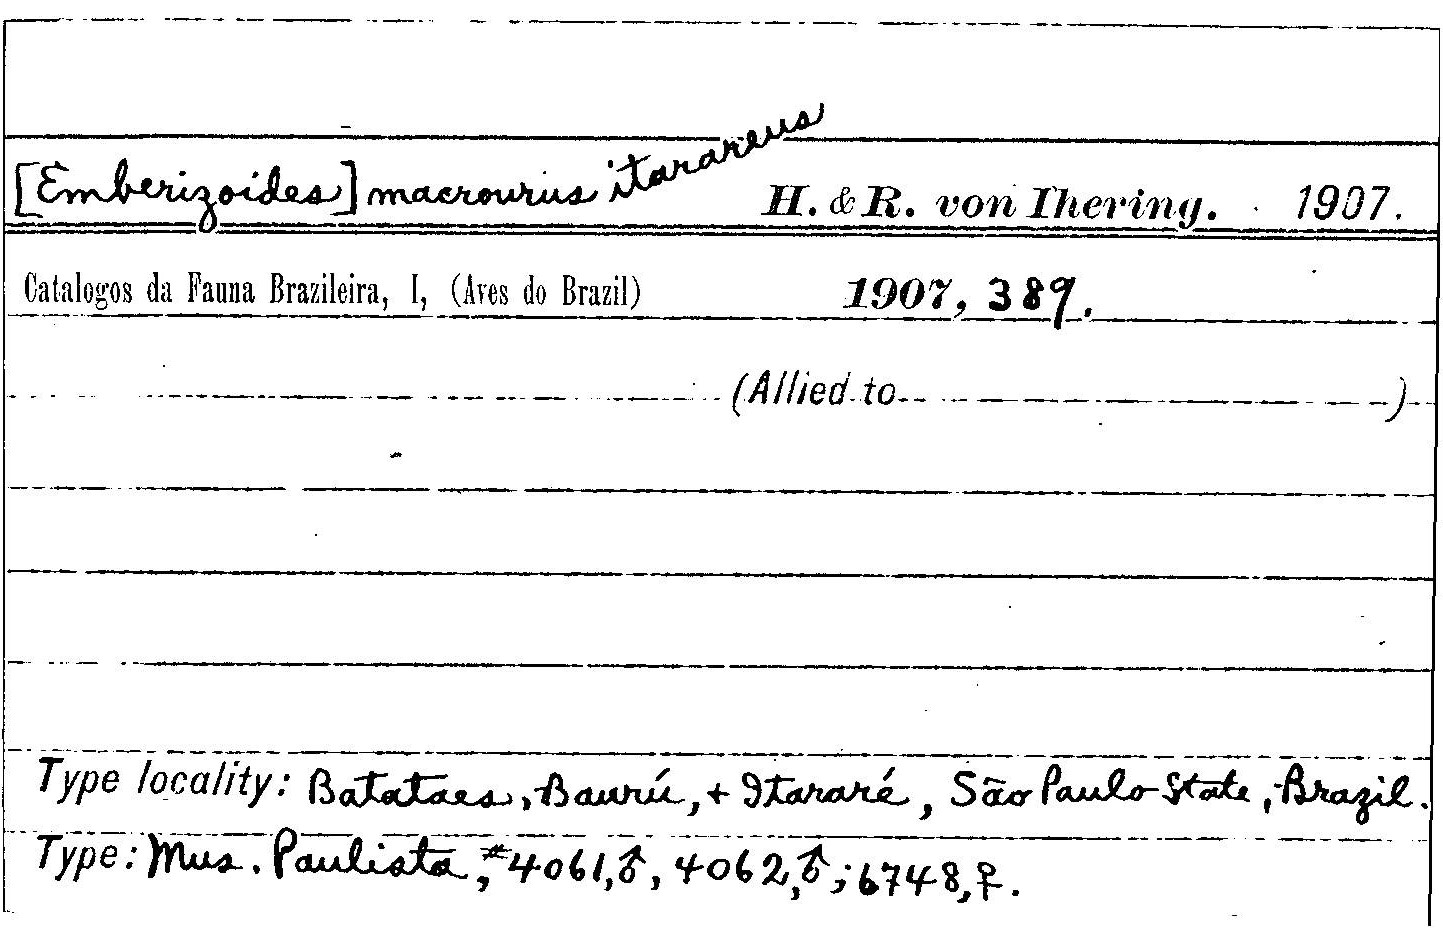 [Emberizoides] macrourus itarareus H. & R. von Ihering. 1907.
Catalogos da Fauna Brazileira, I, (Aves do Brazil) 1907, 389.
(Allied to )
Type locality: Batataes, Baurú, + Itararé, São Paulo State, Brazil.
Type: Mus. Paulista, #4061,♂, 4062,♂; 6748,♀.